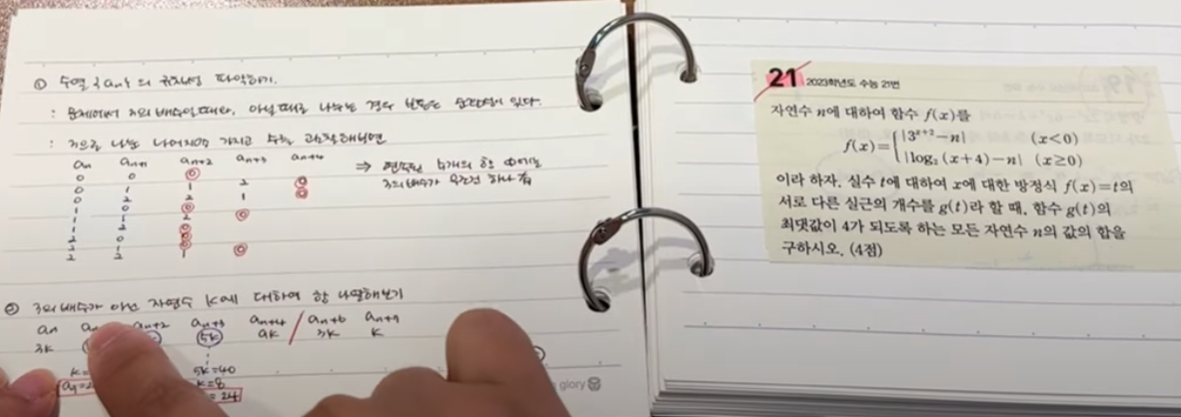 ① 수열 {an} 의 규칙성 파악하기.
: 문제에서 3의 배수일때와, 아닐때로 나누는 경우 반드시 순환성이 있다.
: 3으로 나눈 나머지만 가지고 수를 관찰해보면
an an+1 an+2 an+3 an+4
⇒ 연속된 5개의 항 中에는
0 0 0
3의 배수가 무조건 하나 有
0 1 1 2 0
0 2 2 1 0
1 0
1 1 2 0
1 2 0
2 0
2 1 0
2 2 1 0
② 3의 배수가 아닌 자연수 k에 대하여 항 나열해보기
an an+2 an+3 an+4 an+6 an+9
3k 5k 3k k
5k=40
k=8
= 24
glory
21 2023학년도 수능 21번
자연수 n에 대하여 함수 f(x)를
f(x)={ |3^{x+2}-n| (x<0)
|log₂(x+4)-n| (x≥0)
이라 하자. 실수 t에 대하여 x에 대한 방정식 f(x)=t의
서로 다른 실근의 개수를 g(t)라 할 때, 함수 g(t)의
최댓값이 4가 되도록 하는 모든 자연수 n의 값의 합을
구하시오. (4점)